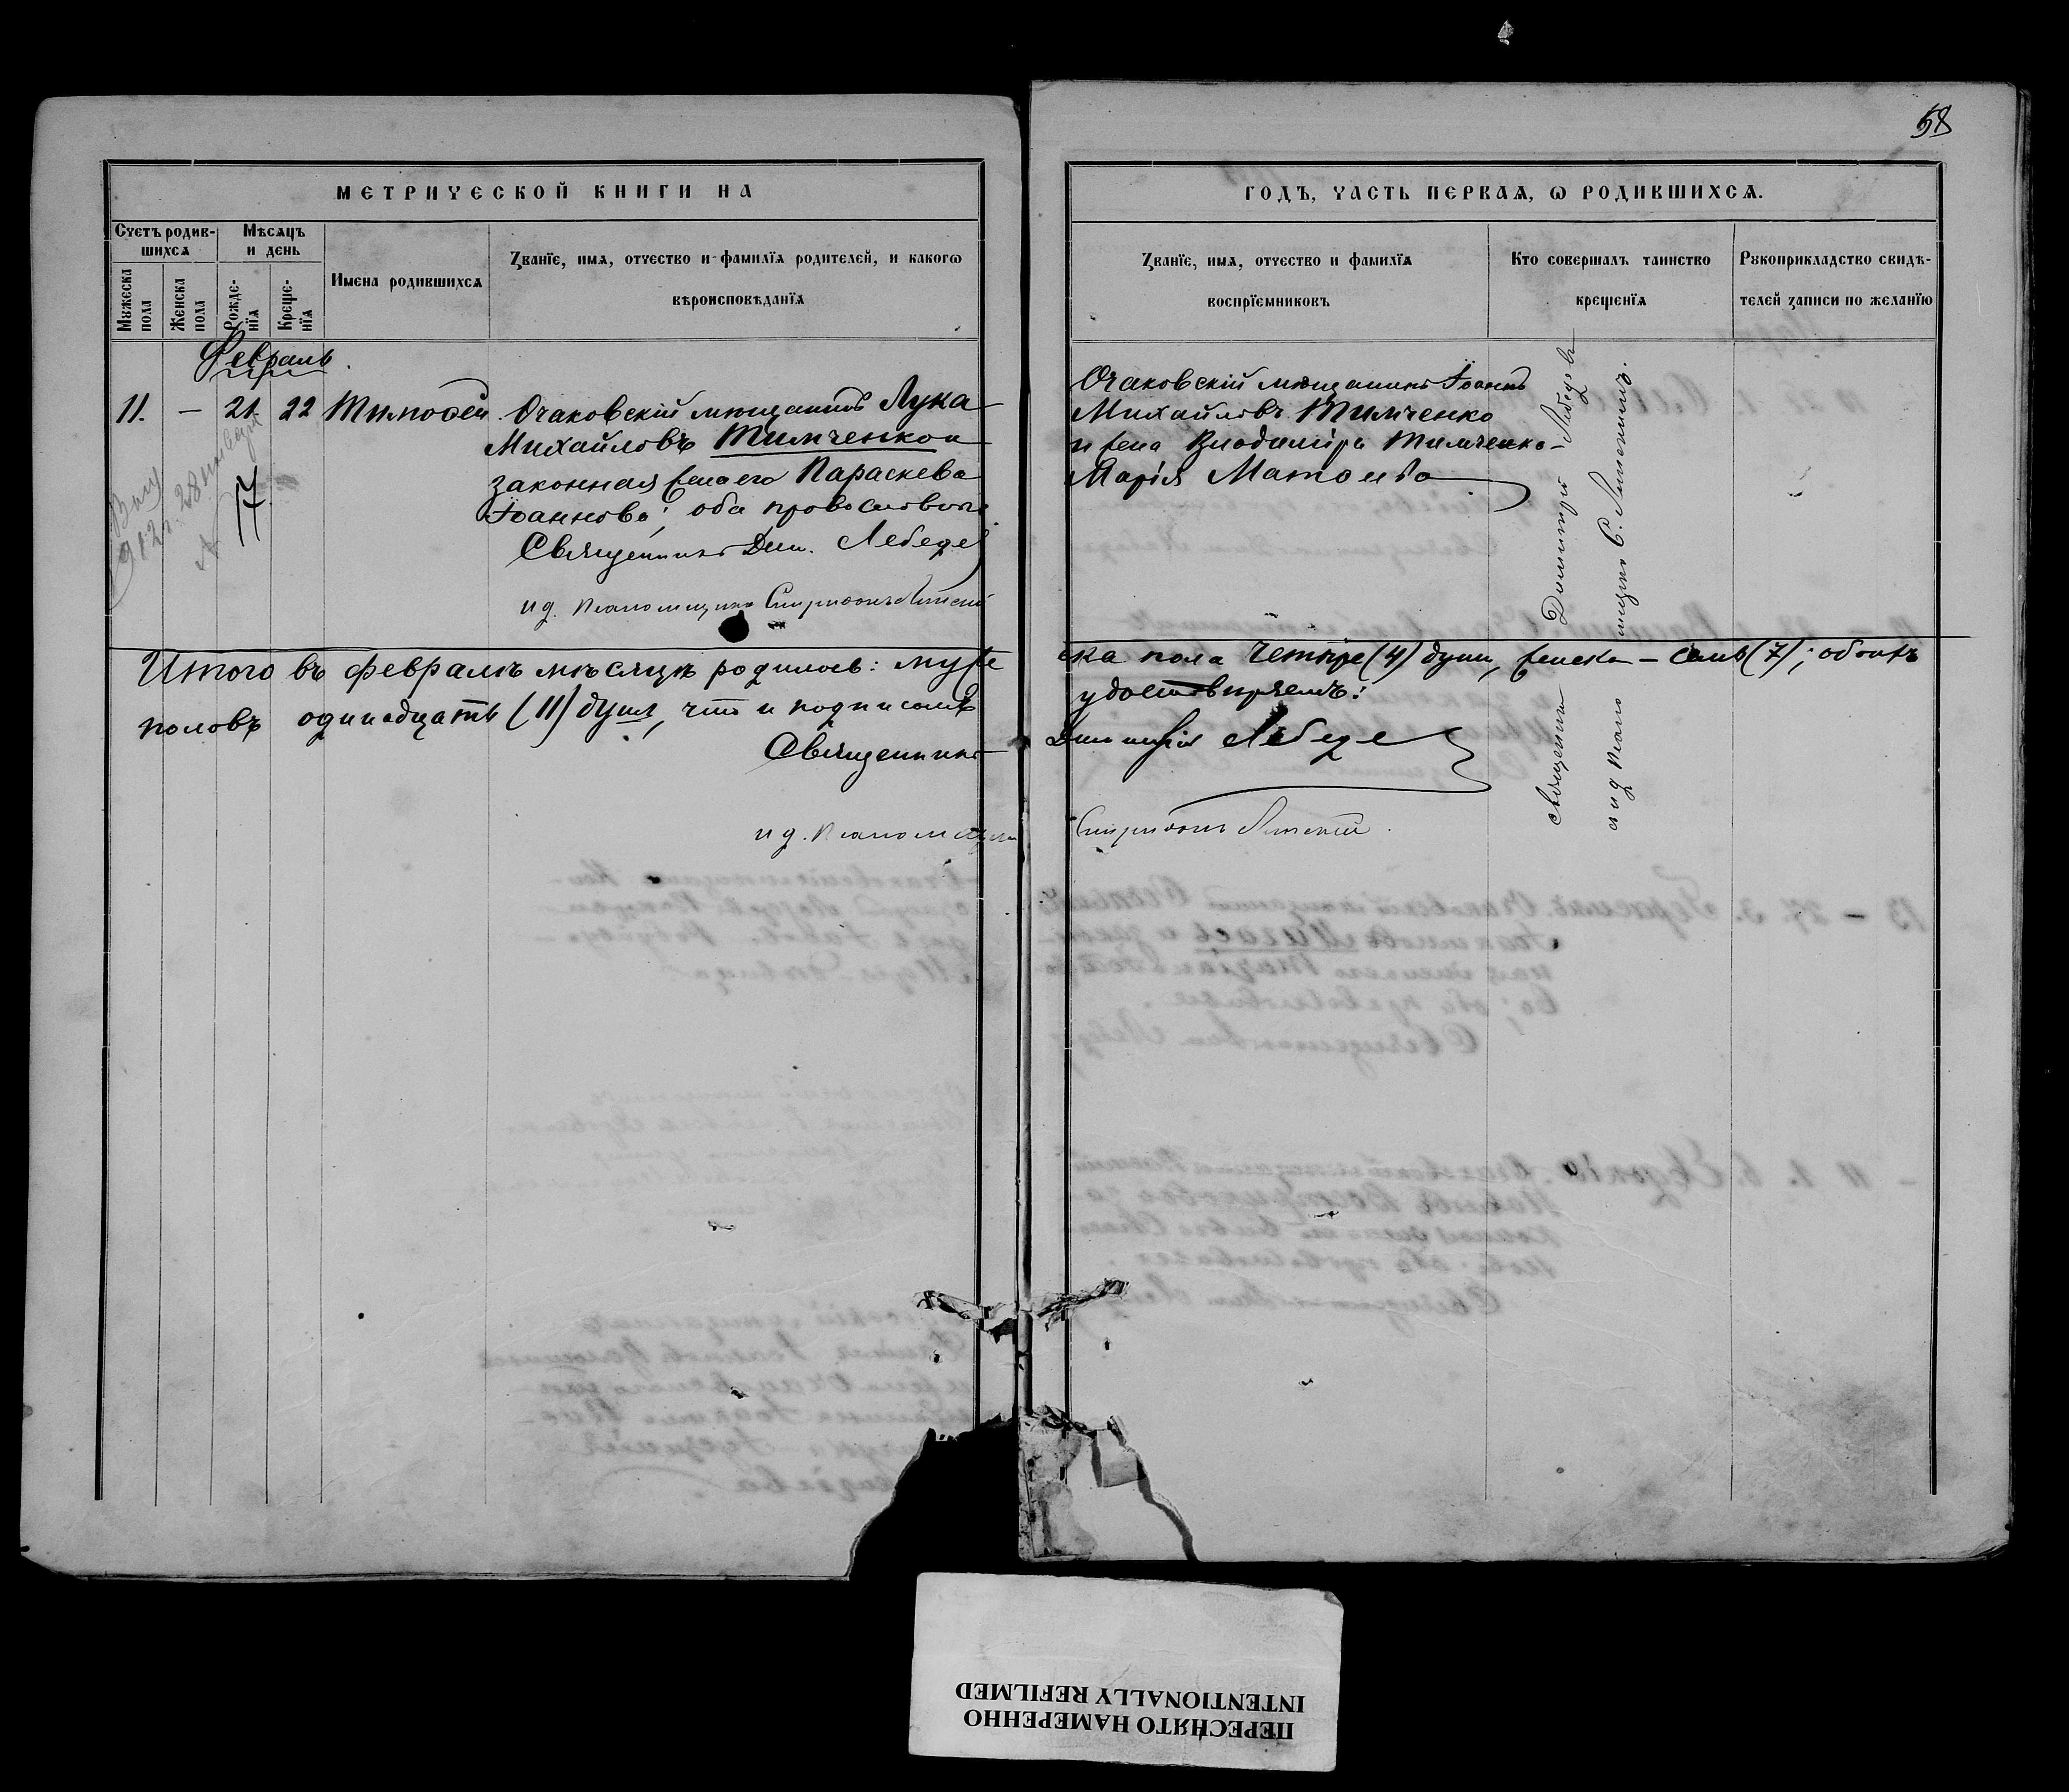 58
МЕТРИЧЕСКОЙ КНИГИ НА
ГОДЪ, ЧАСТЬ ПЕРВАЯ, Ѡ РОДИВШИХСѦ.
Счетъ родив-
шихсѧ
Мѣсѧцъ
и день
Мꙋжеска
пола
Женска
пола
Рожде-
нїѧ
Креще-
нїѧ
Имена родившихсѧ
Званїе, имѧ, отчество и фамилїѧ родителей, и какогѡ
вѣроисповѣданїѧ
Званїе, имѧ, отчество и фамилїѧ
воспрїемниковъ
Кто совершалъ таинство
крещенїѧ
Рꙋкоприкладство свидѣ-
телей записи по желанїю
Февраль.
11. — 21. 22 Тимоѳей. Очаковскій мѣщанинъ Лука
Михайловъ Тимченко и
законная жена его Параскева
Іоаннова; оба православные.
Священникъ Дим. Лебедев
и д. псаломщика Спиридонъ
17
Очаковскій мѣщанинъ Іоаннъ
Михайловъ Тимченко
и жена Владиміра Тимченко-
Марія Матѳіева
Священникъ Димитрій Лебедевъ
и д псаломщика С.
Итого въ февралѣ мѣсяцѣ родилось: муже
ска пола четыре (4) души, женска — семь (7); обоихъ
половъ одинадцать (11) душъ, что и подписомъ
удостовѣряемъ:
Священникъ Димитрій Лебедев
и д. псаломщика Спиридонъ
ПЕРЕСНЯТО НАМЕРЕННО
INTENTIONALLY REFILMED